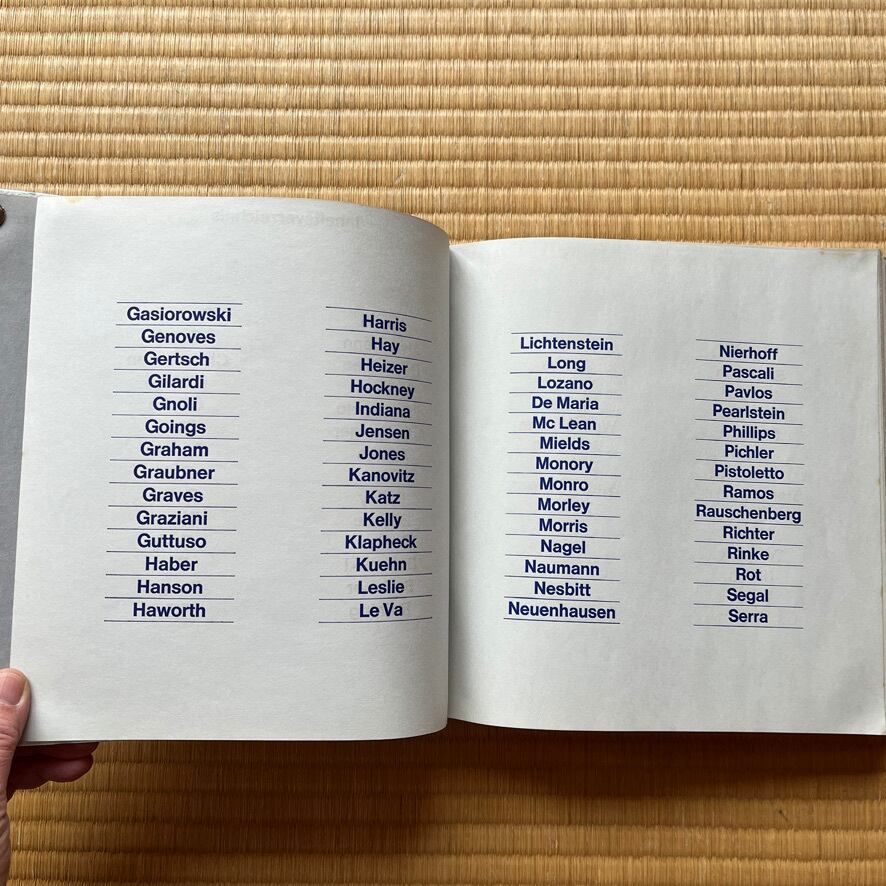 Gasiorowski
Genoves
Gertsch
Gilardi
Gnoli
Goings
Graham
Graubner
Graves
Graziani
Guttuso
Haber
Hanson
Haworth
Harris
Hay
Heizer
Hockney
Indiana
Jensen
Jones
Kanovitz
Katz
Kelly
Klapheck
Kuehn
Leslie
Le Va
Lichtenstein
Long
Lozano
De Maria
Mc Lean
Mields
Monory
Monro
Morley
Morris
Nagel
Naumann
Nesbitt
Neuenhausen
Nierhoff
Pascali
Pavlos
Pearlstein
Phillips
Pichler
Pistoletto
Ramos
Rauschenberg
Richter
Rinke
Rot
Segal
Serra